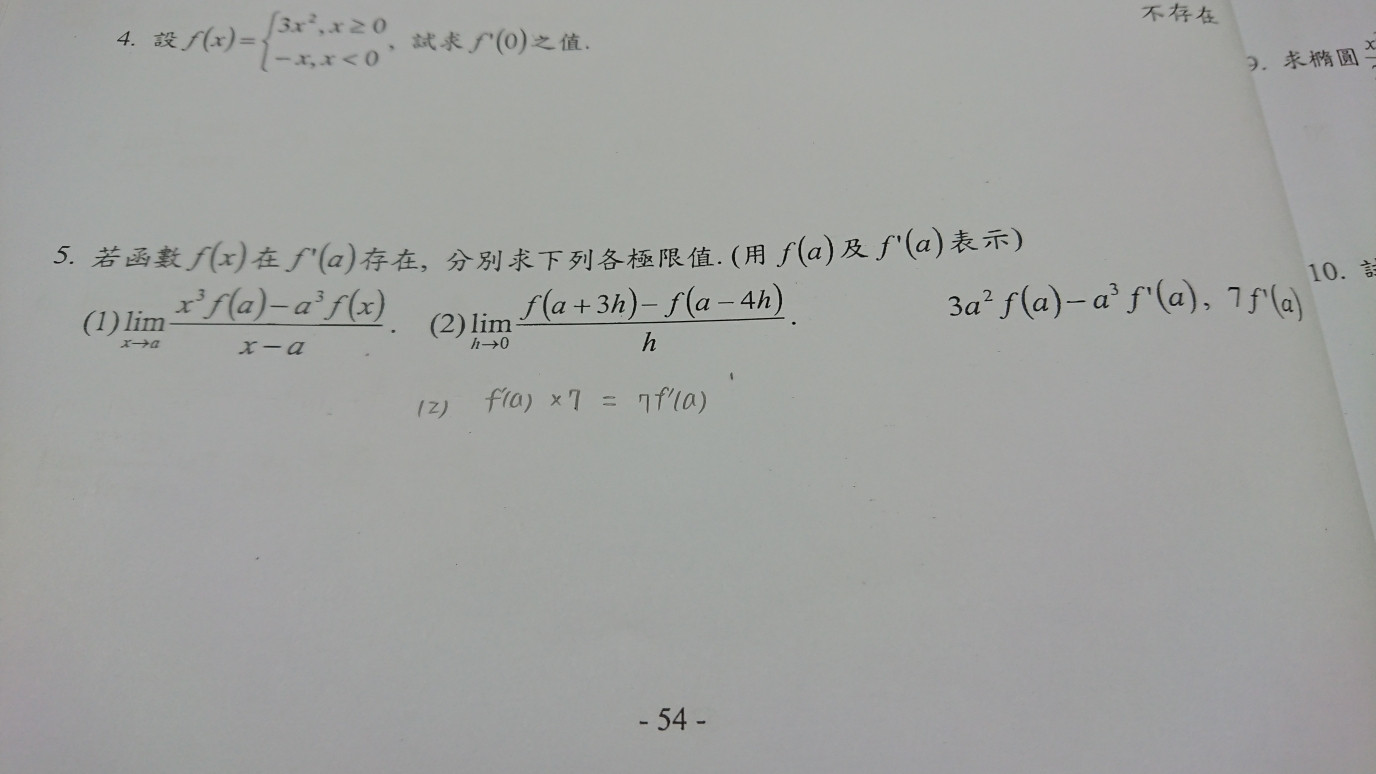 4. 設 f(x)={3x²,x≥0 -x,x<0, 試求 f'(0)之值.
不存在
9. 求橢圓
5. 若函數 f(x)在 f'(a)存在, 分別求下列各極限值.(用 f(a)及 f'(a)表示)
(1) lim x→a (x³f(a)-a³f(x))/(x-a). (2) lim h→0 (f(a+3h)-f(a-4h))/h.
3a²f(a)-a³f'(a), 7f'(a)
10.
(2) f'(a) ×7 = 7f'(a)
- 54 -